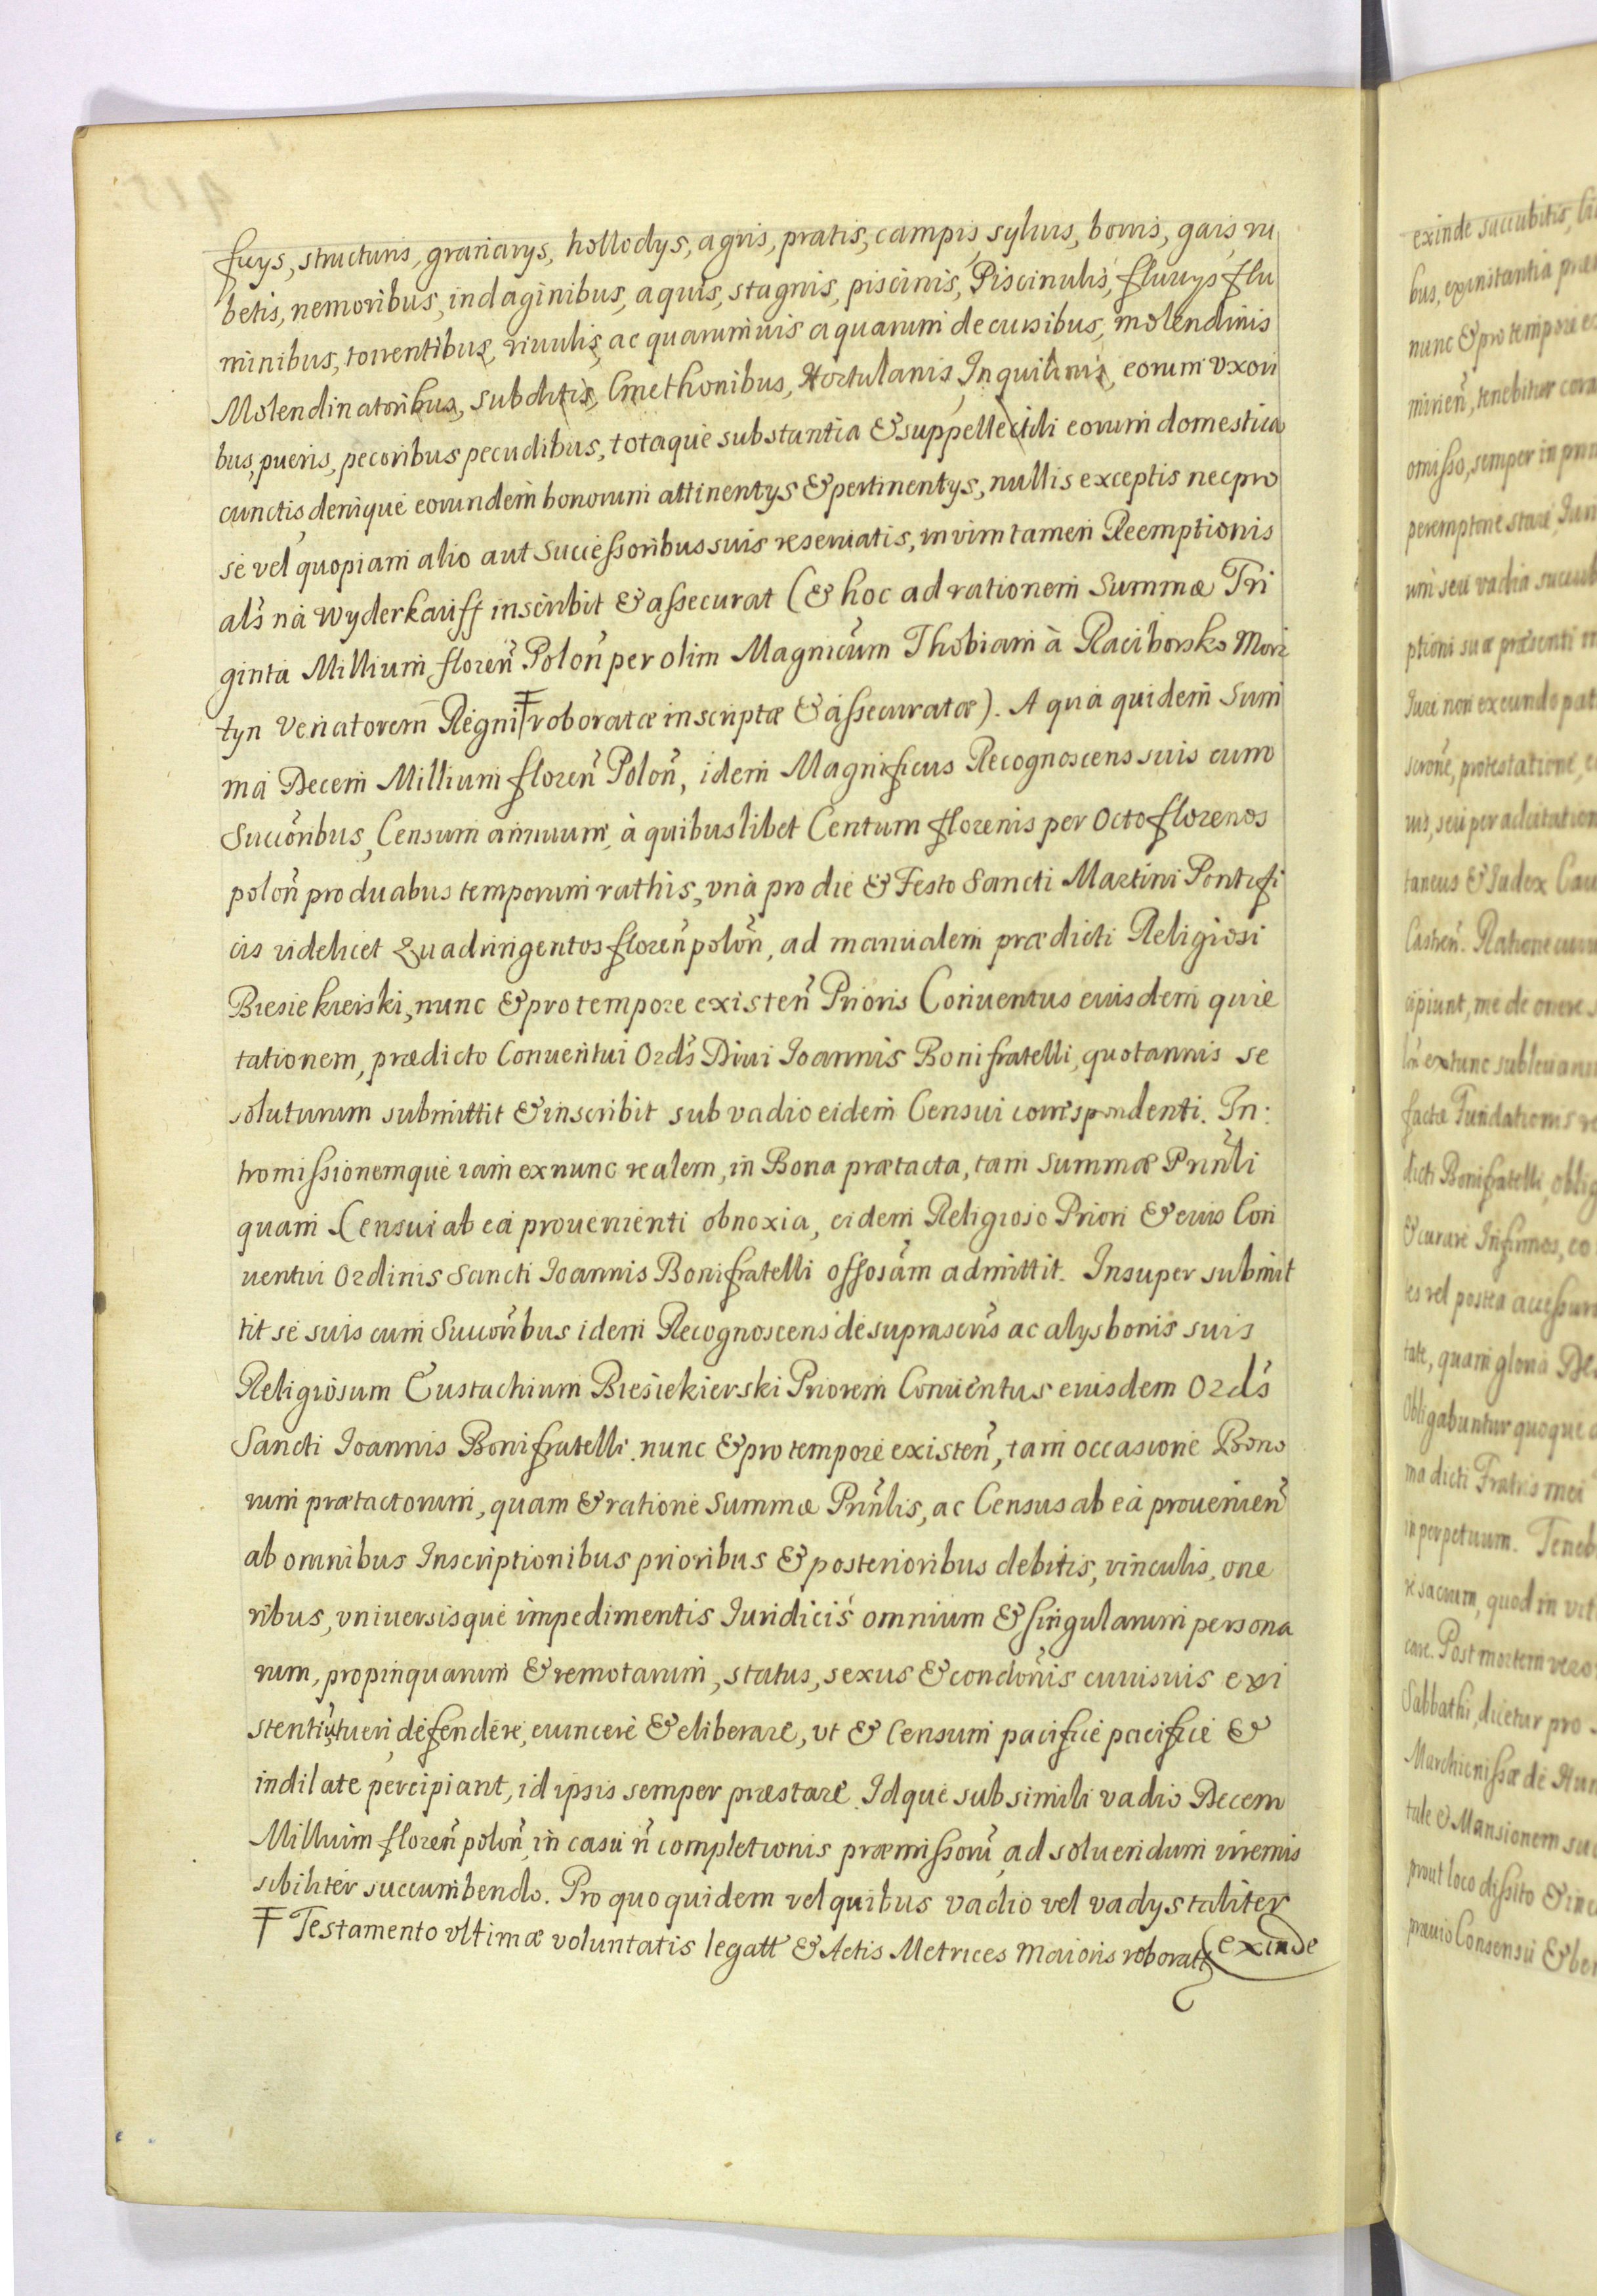 ficys, structuris, granarys, hollodys, agris, pratis, campis, syluis, borris, gais, ru
betis, nemoribus, indaginibus, aquis, stagnis, piscinis, Piscinulis, fluuys flu
minibus, torrentibus, riuulis, ac quarumuis aquarum decursibus, molendinis
Molendinatoribus, subditis, Cmethonibus, Hortulanis, Inquilinis, eorum vxori
bus, pueris, pecoribus pecudibus, totaque substantia & suppellectili eorum domestica
cunctis denique eorundem bonorum attinentys & pertinentys, nullis exceptis nec pro
se vel quopiam alio aut Successoribus suis reseruatis, in vim tamen Reemptionis
als na wyderkauff inscribit & assecurat (& hoc ad rationem Summæ Tri
ginta Millium floren̄ Polon̄ per olim Magnicum̄ Thobiam à Raciborsko Morz
tyn Venatorem Regni Ŧ roboratæ inscriptæ & assecuratæ). A qua quidem Sum
ma Decem Millium floren̄ Polon̄, idem Magnificus Recognoscens suis cum
Succōribus, Censum annuum, à quibuslibet Centum florenis per Octo florenos
polon̄ pro duabus temporum rathis, vna pro die & Festo Sancti Martini Pontifi
cis videlicet Quadringentos floren̄ polon̄, ad manualem prædicti Religiosi
Biesiekierski, nunc & pro tempore existen̄ Prioris Conuentus eiusdem quie
tationem, prædicto Conuentui Ord̄s Diui Ioannis Bonifratelli, quotannis se
soluturum submittit & inscribit sub vadio eidem Censui correspondenti. In:
tromissionemque iam ex nunc realem, in Bona prætacta, tam Summæ Prin̄li
quam Censui ab ea prouenienti obnoxia, eidem Religioso Priori & eius Con
uentui Ordinis Sancti Ioannis Bonifratelli offosām admittit. Insuper submit
tit se suis cum Succōribus idem Recognoscens de suprascr̄is ac alys bonis suis
Religiosum Eustachium Biesiekierski Priorem Conuentus eiusdem Ord̄s
Sancti Ioannis Bonifratelli nunc & pro tempore existen̄, tam occasione Bono
rum prætactorum, quam & ratione Summæ Prin̄lis, ac Census ab ea prouenien̄
ab omnibus Inscriptionibus prioribus & posterioribus debitis, vinculis, one
ribus, vniuersisque impedimentis Iuridicis omnium & singularum persona
rum, propinquarum & remotarum, status, sexus & condōnis cuiusuis exi
stentiū tueri, defendere, euincere & eliberare, vt & Censum pacifice pacifice &
indilate percipiant, id ipsis semper præstare. Idque sub simili vadio Decem
Millium floren̄ polon̄ in casu n̄ completionis præmissorū ad soluendum irremis
sibiliter succumbendo. Pro quo quidem vel quibus vadio vel vadys taliter
Ŧ Testamento vltimæ voluntatis legatt & Actis Metrices Maioris roboratt exinde
exinde succubitis,
nunc & pro tempore
tenebitur
omisso, semper in
peremptorie stare,
um seu vadia
ptioni suæ præsenti
Iure non excundo
protestatione,
taneus & Iudex
Castren̄. Ratione
cipiunt, me de onere
extunc
factæ Fundationis
dicti Bonifratelli,
& curare Infirmos,
es vel postea
tate, quam gloria
Obligabuntur quoque
ma dicti Fratris mei
in perpetuum.
re sacrum, quod in
care. Post mortem vero
Sabbathi, dicetur pro
tule & Mansionem
prout loco dissito
præuio Consensu &